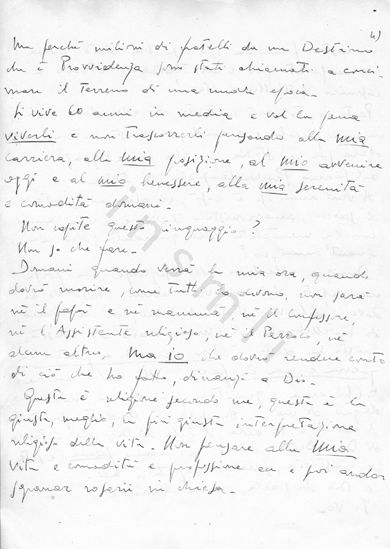 4)
Ma perché milioni di fratelli da un Destino
che è Provvidenza sono stati chiamati a conci
mare il terreno di una nuova epoca.
Si vive 60 anni in media e val la pena
viverli e non trascorrerli pensando alla mia
carriera, alla mia posizione, al mio avvenire
oggi e al mio benessere, alla mia serenità
e comodità domani.
Non capite questo linguaggio?
Non so che fare.
Domani quando verrà la mia ora, quando
dovrò morire, come tutti lo devono, non sarà
né il papà e né mamma, né il Confessore,
né l'Assistente religioso, né il Parroco, né
alcun altro, Ma io che dovrò rendere conto
di ciò che ho fatto, dinanzi a Dio.
Questa è religione secondo me, questa è la
giusta, meglio, la più giusta interpretazione
religiosa della vita. Non pensare alla mia
vita e comodità e professione ecc e poi andar
sgranar rosari in chiesa.
insmli